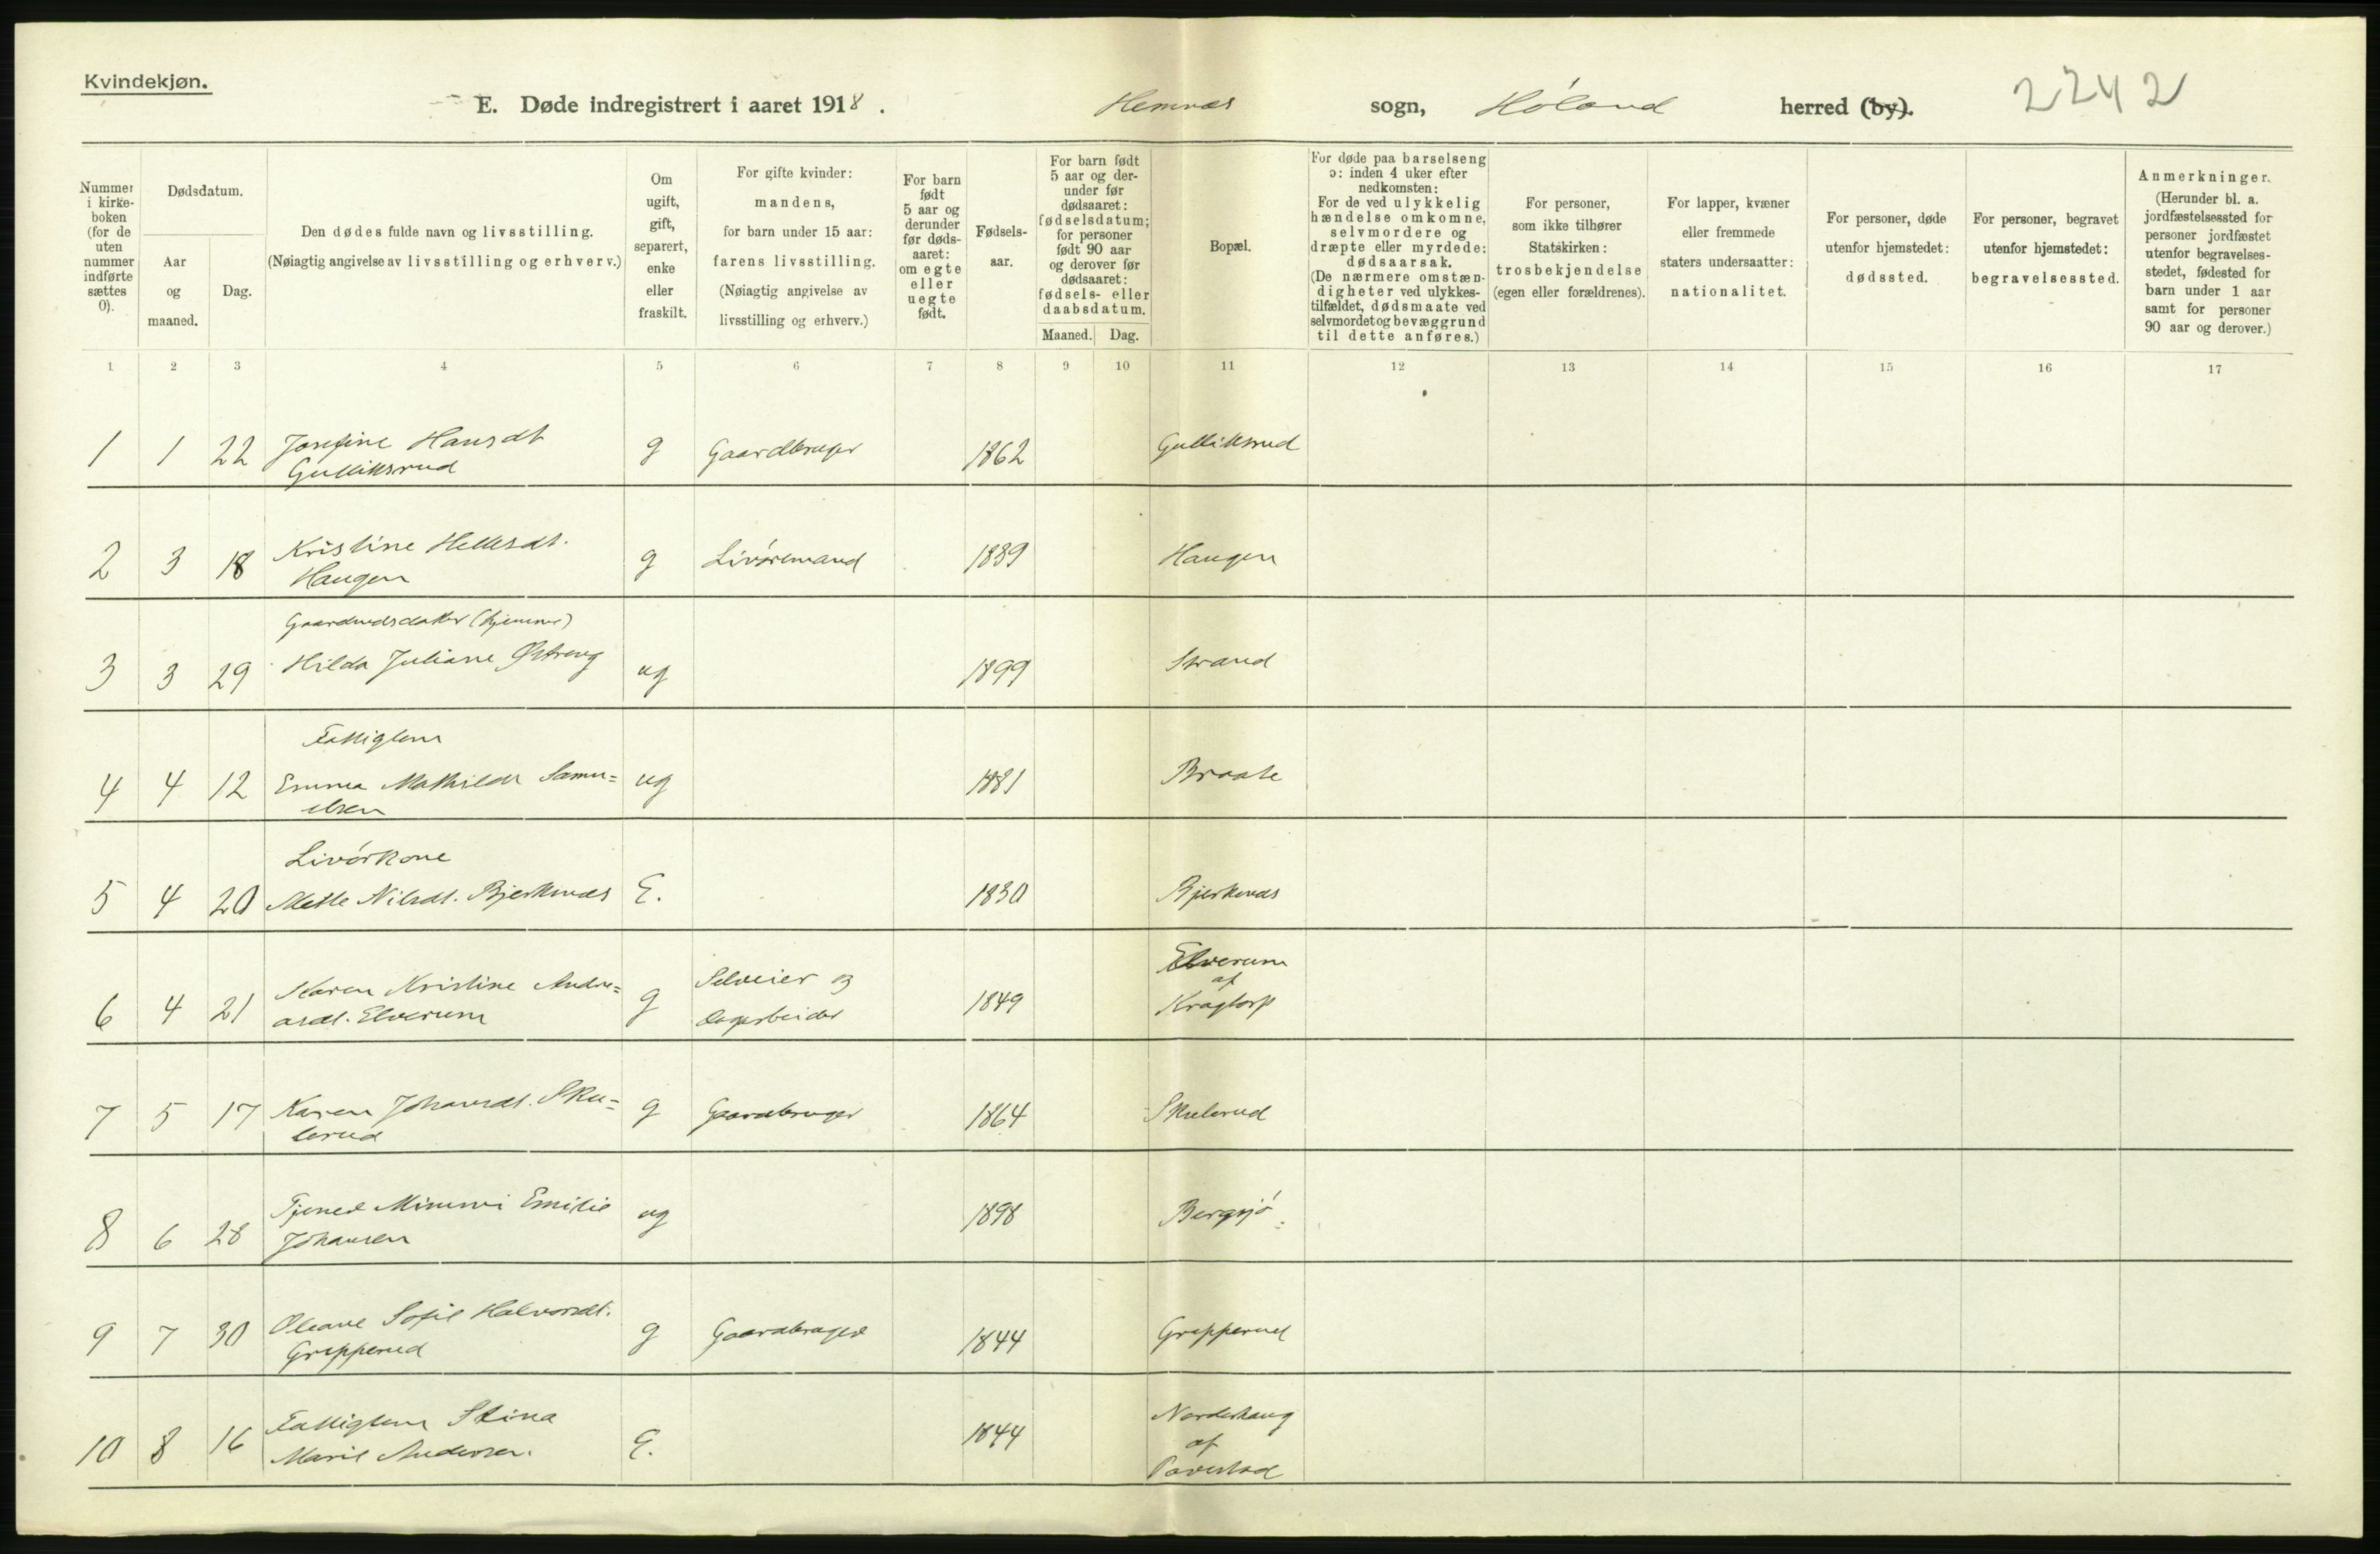 Kvindekjøn.
E. Døde indregistrert i aaret 1918. Hemnes sogn, Høland herred (by). 2242
Nummer i kirkeboken (for de uten nummer indførte sættes 0).
Dødsdatum.
Aar og maaned.
Dag.
Den dødes fulde navn og livsstilling.
(Nøiagtig angivelse av livsstilling og erhverv.)
Om ugift, gift, separert, enke eller fraskilt.
For gifte kvinder: mandens, for barn under 15 aar: farens livsstilling. (Nøiagtig angivelse av livsstilling og erhverv.)
For barn født 5 aar og derunder før dødsaaret: om egte eller uegte født.
Fødselsaar.
For barn født 5 aar og derunder før dødsaaret: fødselsdatum; for personer født 90 aar og derover før dødsaaret: fødsels- eller daabsdatum.
Maaned. Dag.
Bopæl.
For døde paa barselseng ɔ: inden 4 uker efter nedkomsten: For de ved ulykkelig hændelse omkomne, selvmordere og dræpte eller myrdede: dødsaarsak. (De nærmere omstændigheter ved ulykkestilfældet, dødsmaate ved selvmordet og bevæggrund til dette anføres.)
For personer, som ikke tilhører Statskirken: trosbekjendelse (egen eller forældrenes).
For lapper, kvæner eller fremmede staters undersaatter: nationalitet.
For personer, døde utenfor hjemstedet: dødssted.
For personer, begravet utenfor hjemstedet: begravelsessted.
Anmerkninger. (Herunder bl. a. jordfæstelsessted for personer jordfæstet utenfor begravelsesstedet, fødested for barn under 1 aar samt for personer 90 aar og derover.)
1 2 3 4 5 6 7 8 9 10 11 12 13 14 15 16 17
1 1 22 Josefine Hansdt g Gaardbruger 1862 Gulliksrud
Gulliksrud
2 3 18 Kristine g Livøremand 1839 Haugen
Haugen
Gaardmdsdatter (hjemme)
3 3 29 Hilda Juliane Østreng ug 1899 Strand
Fattiglem
4 4 12 Emma Mathilde Samu= ug 1881 Braate
elsen
Livørkone
5 4 20 Mette Nilsdt. Bjerknes E. 1830 Bjerknes
6 4 21 Karen Kristine Andre= g Selveier og 1849 Elverum
asdt. Elverum dagarbeider af
Kragtorp
7 5 17 Karen Johansdt. Sku= g Gaardbruger 1864 Skulerud
lerud
8 6 28 Tjened Mimmi Emilie ug 1898 Bergsjø
Johansen
9 7 30 Oleane Sofie Halvorsdt. g Gaardbruger 1844 Grepperud
Grepperud
10 8 16 Fattiglem Stina E. 1844 Nordshaug
Marie Andersen. af